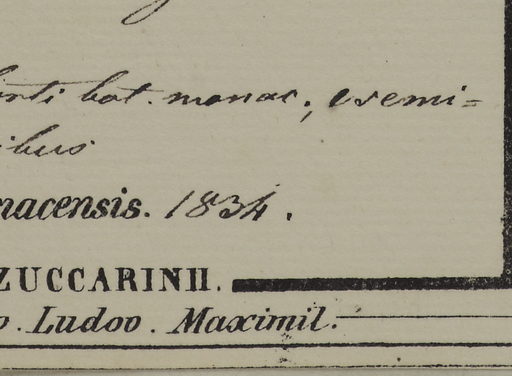 horti bot. monac., e semi=
ibus
nacensis. 1834.
ZUCCARINII.
o. Ludov. Maximil.